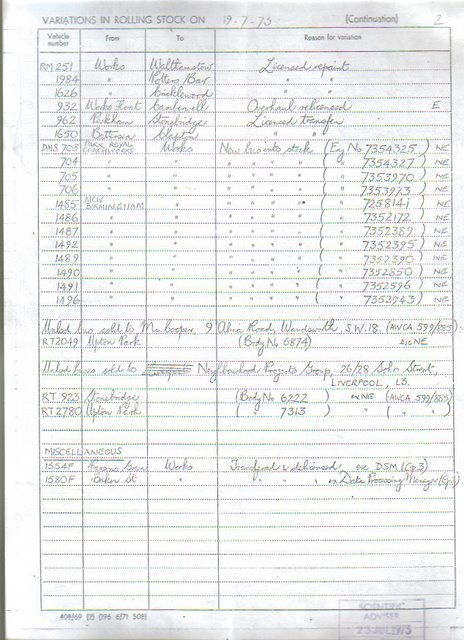 VARIATIONS IN ROLLING STOCK ON 19-7-73 (Continuation) 2
Vehicle number From To Reason for variation
RM 251 Works Walthamstow Licensed repaint
1984 " Potters Bar " "
1626 " Cricklewood " "
932 Works Float Camberwell Overhaul relicensed E
962 Peckham Stonebridge Licensed transfer
1650 Battersea Clapton " "
DMS 703 PARK ROYAL COACHWORKS Works New bus into stock (Eng No 7354325) NE
704 " " " " " " ( " 7354327) NE
705 " " " " " " ( " 7353970) NE
706 " " " " " " ( " 7353973) NE
1485 MCW BIRMINGHAM " " " " " ( " 7258141) NE
1486 " " " " " " ( " 7352172) NE
1487 " " " " " " ( " 7352389) NE
1492 " " " " " " ( " 7352395) NE
1489 " " " " " " ( " 7352390) NE
1490 " " " " " " ( " 7352850) NE
1491 " " " " " " ( " 7352596) NE
1496 " " " " " " ( " 7352943) NE
bus sold to Mr. Cooper, 9 Alma Road, Wandsworth, S.W.18. (AWCA 599/885):-
RT2049 Upton Park (Body No 6874) NE
sold to Neighbourhood Projects Group, 26/28 Street,
LIVERPOOL, L3.
RT 923 Stonebridge (Body No 6222) NE (AWCA 599/885)
RT 2780 Upton Park ( " 7313) " ( " " )
MISCELLANEOUS
1554F Parsons Green Works Transferred & delicensed ex DSM (Gp3)
1580F Baker St " " " " ex Data Processing Manager (Gp3)
408/69 (2) (196 6/71 508)
SCIENTIFIC
ADVISER
23 JUL 1973